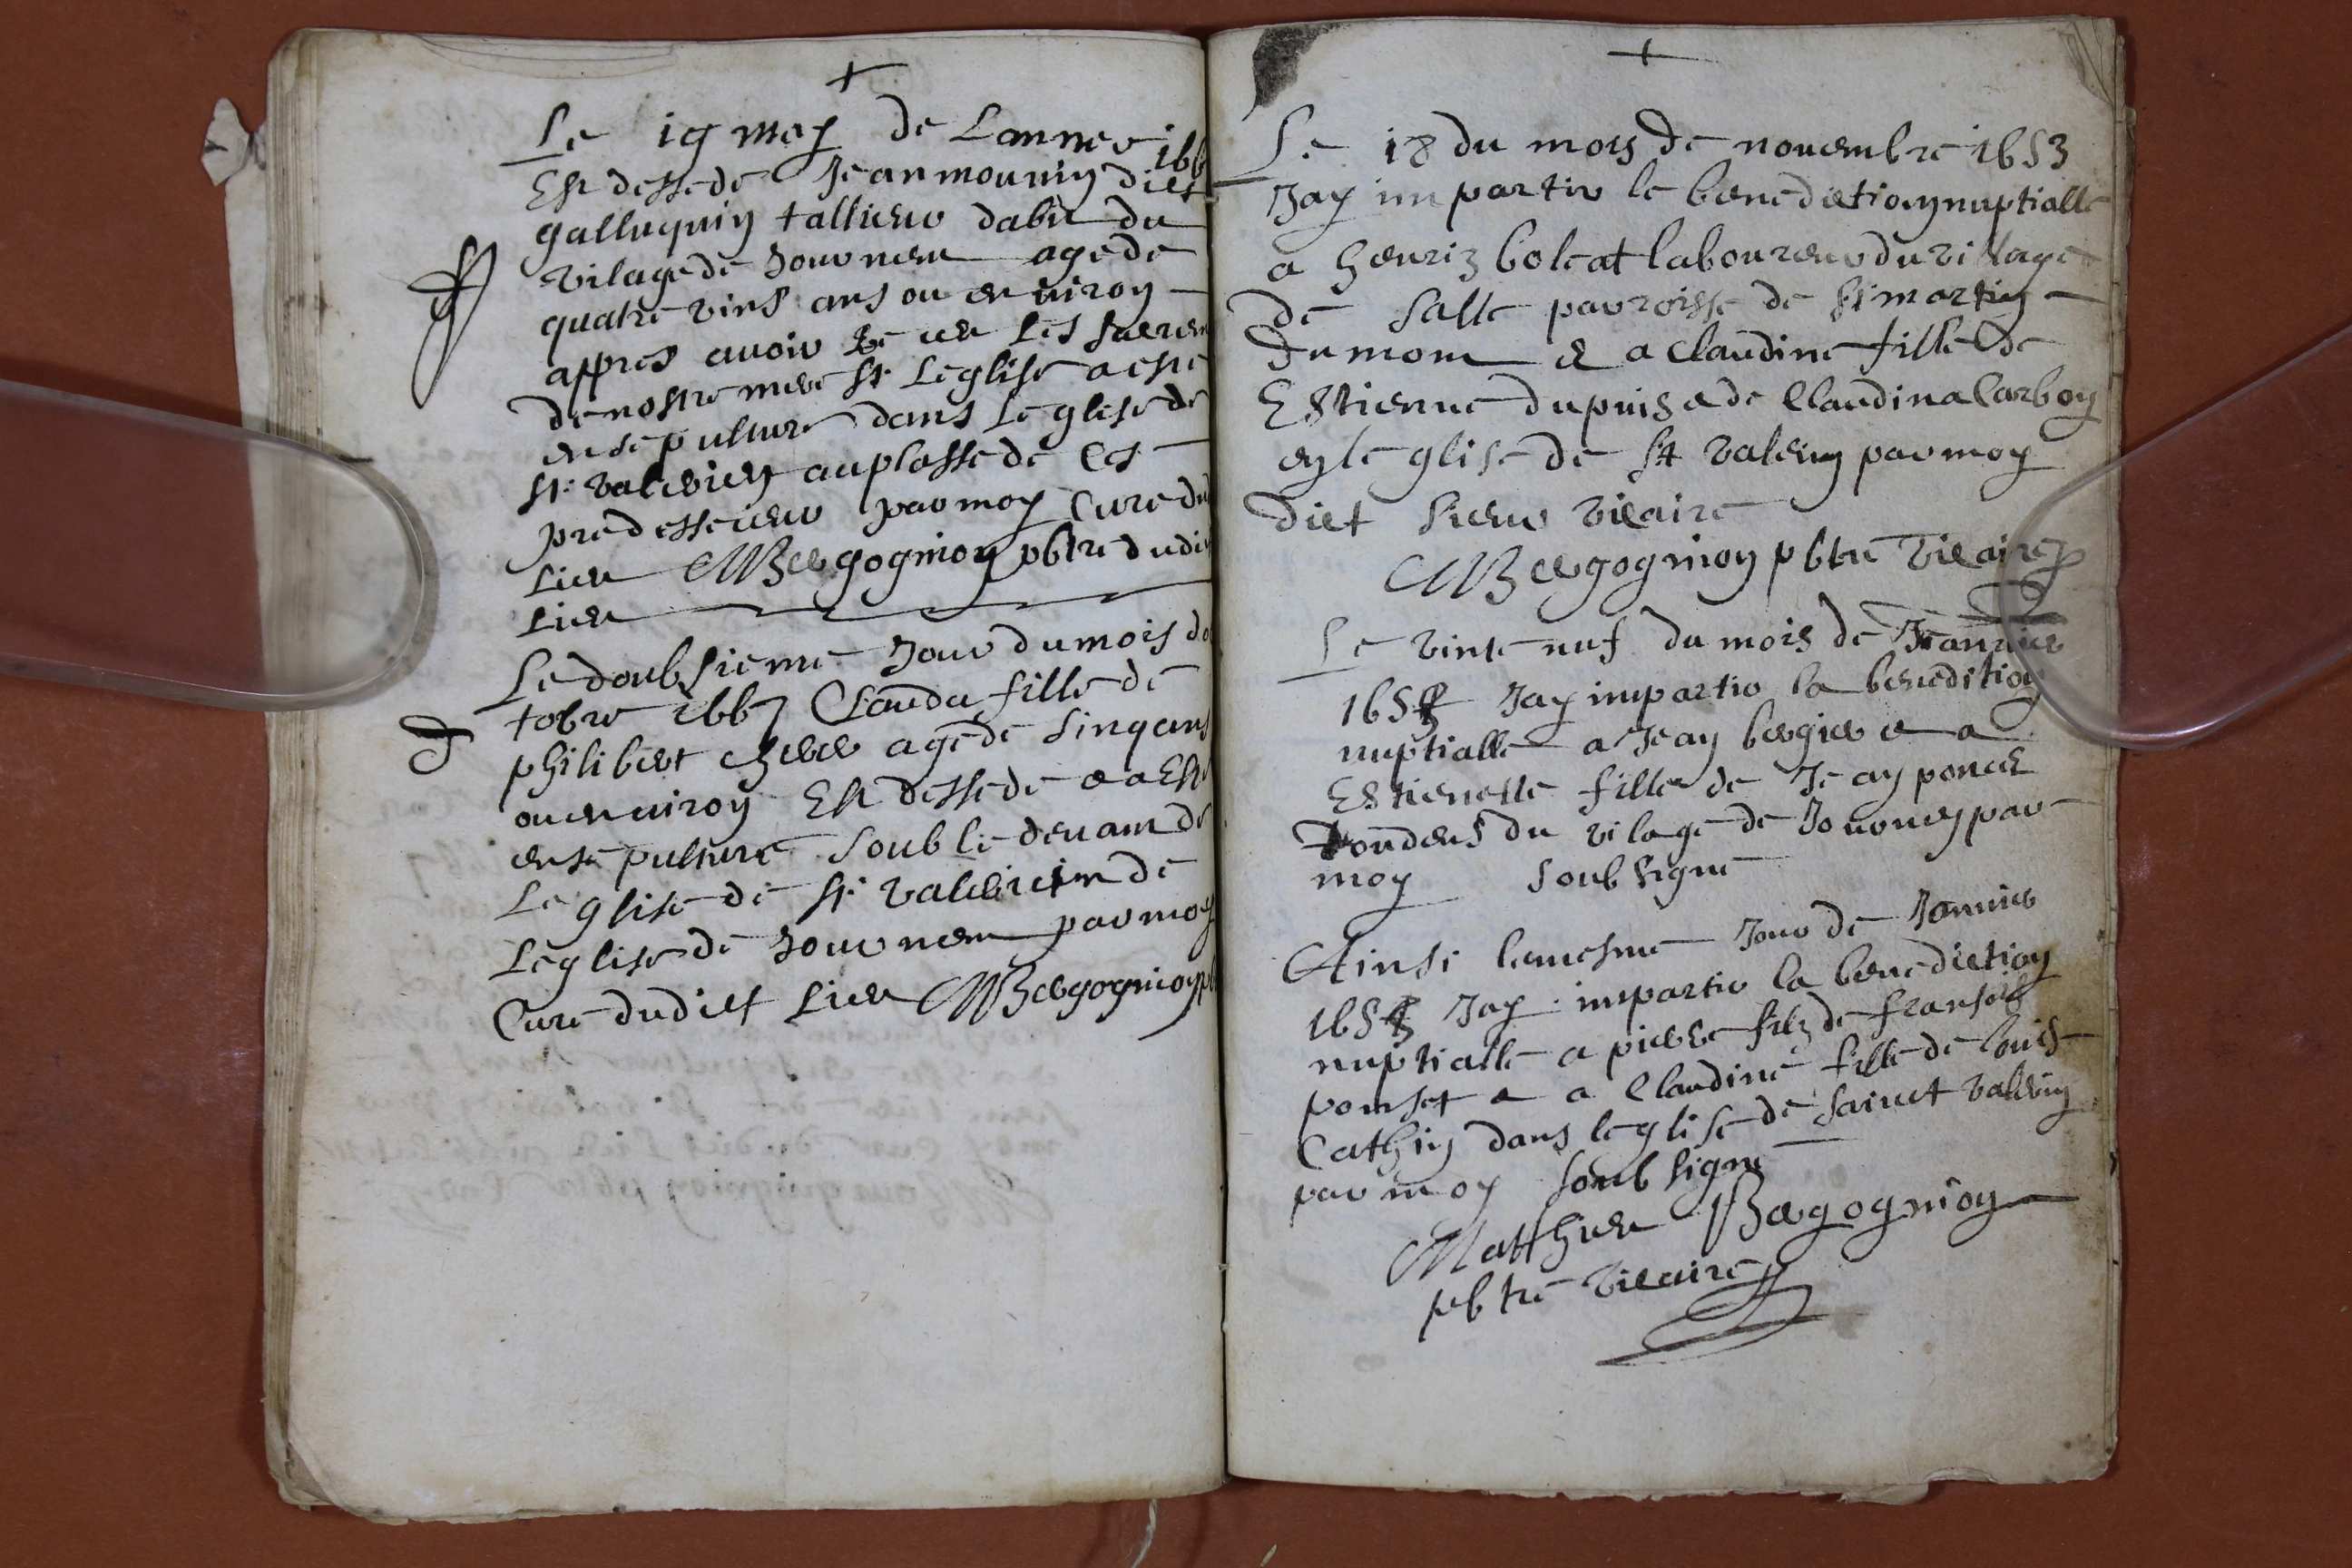 +
Le 19 may de Lannee 166
Est dessede Jean mounin dict
galluquin tallieur dabit du
vilage de Journem agede
quatre vins ans ou enuiron
appres auoir les sacrem
de nostre mere st Leglise a este
ensepulture dans Leglise de
st valerien auplasse de ces
predessesieur par moy Cure du
Lieu MBergognion pbtre dudit
Lieu
Le doubsieme Jour dumois do
tobre 1667 Clauda fille de
philibert agede sinq ans
ou enuiron Est dessede e a Este
ensepulture soub le deuam de
Leglise de st valerien de
Leglise de Journem par moy
Cure dudict Lieu MBergognion
+
Le 18 du mois de nouembre 1653
Jay impartir le benediction nuptialle
a henriz boleat laboureur du village
de salle parroisse de st martin
du mom e a Claudine fille de
Estienne dupuis e de Claudina Carbon
en leglise de st valerin par moy
dict sieur vicaire
MBergognion pbtre vicaire
Le vinte nuf du mois de Jeanuier
165 Jay impartir la benedition
nuptialle a Jean bergier e a
Estienette fille de Jean poncet
du vilage de Journem par
moy soubsigne
Ainsi lemesme Jour de Januier
165 Jay impartir la benediction
nuptialle a pierre filz de fransois
ponset e a Claudine fille de louis
Cathin dans leglise de sainct valerin
par moy soubsigne
Matthieu Bergognion
pbtre vicaire